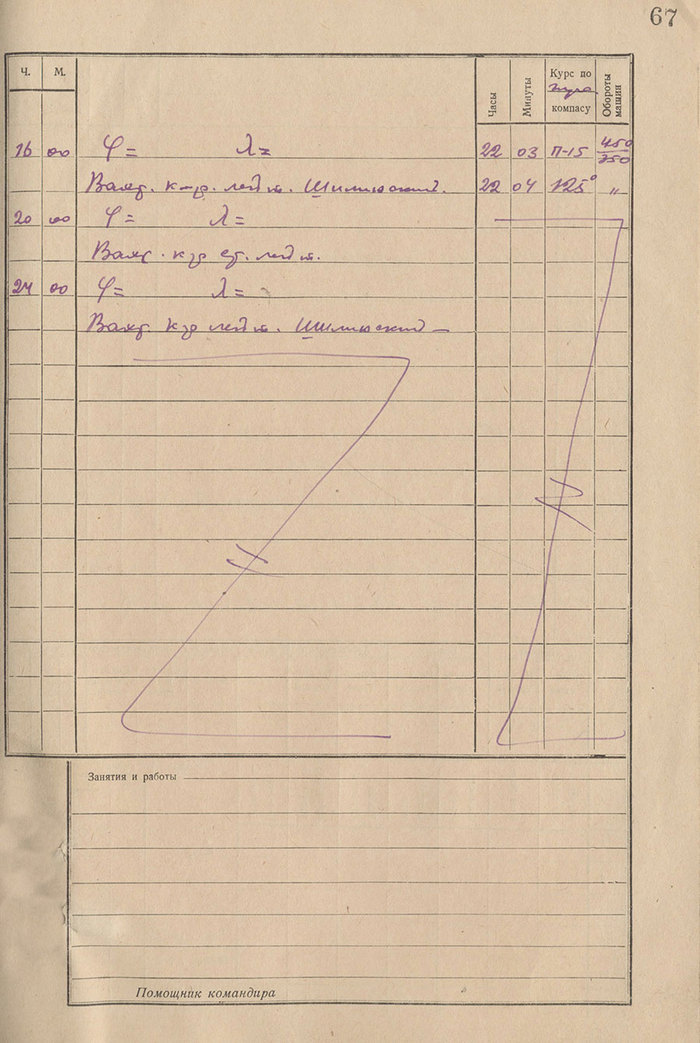 67
Ч. М. Часы Минуты Курс по гиро компасу Обороты машин
16 00 φ= λ= 22 03 П-15 450/350
Вахт. к-р. лейт. 22 04 125° "
20 00 φ= λ=
Вахт. к-р ст. лейт.
24 00 φ= λ=
Вахт. к-р лейт.
Занятия и работы
Помощник командира